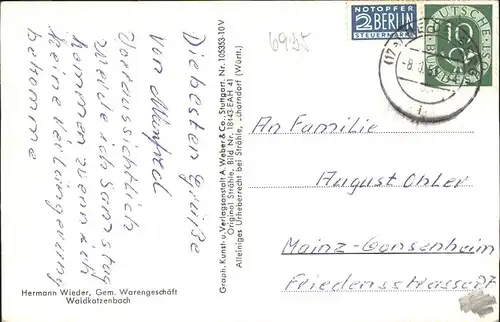 Die besten Grüße
von Manfred
Voraussichtlich
werde ich Samstag
kommen wenn ich
keine Verlängerung
bekomme
Hermann Wieder, Gem. Warengeschäft
Waldkatzenbach
Graph. Kunst- u. Verlagsanstalt A. Weber & Co. Stuttgart. Nr. 105353-10 V
Original Strähle, Bild Nr. 18143-EAH 41
Alleiniges Urheberrecht bei Strähle, Schorndorf (Württ.)
6935
NOTOPFER
2 BERLIN
STEUERMARKE
DEUTSCHE POST
10
An Familie
August Ohler
Mainz-Gonsenheim